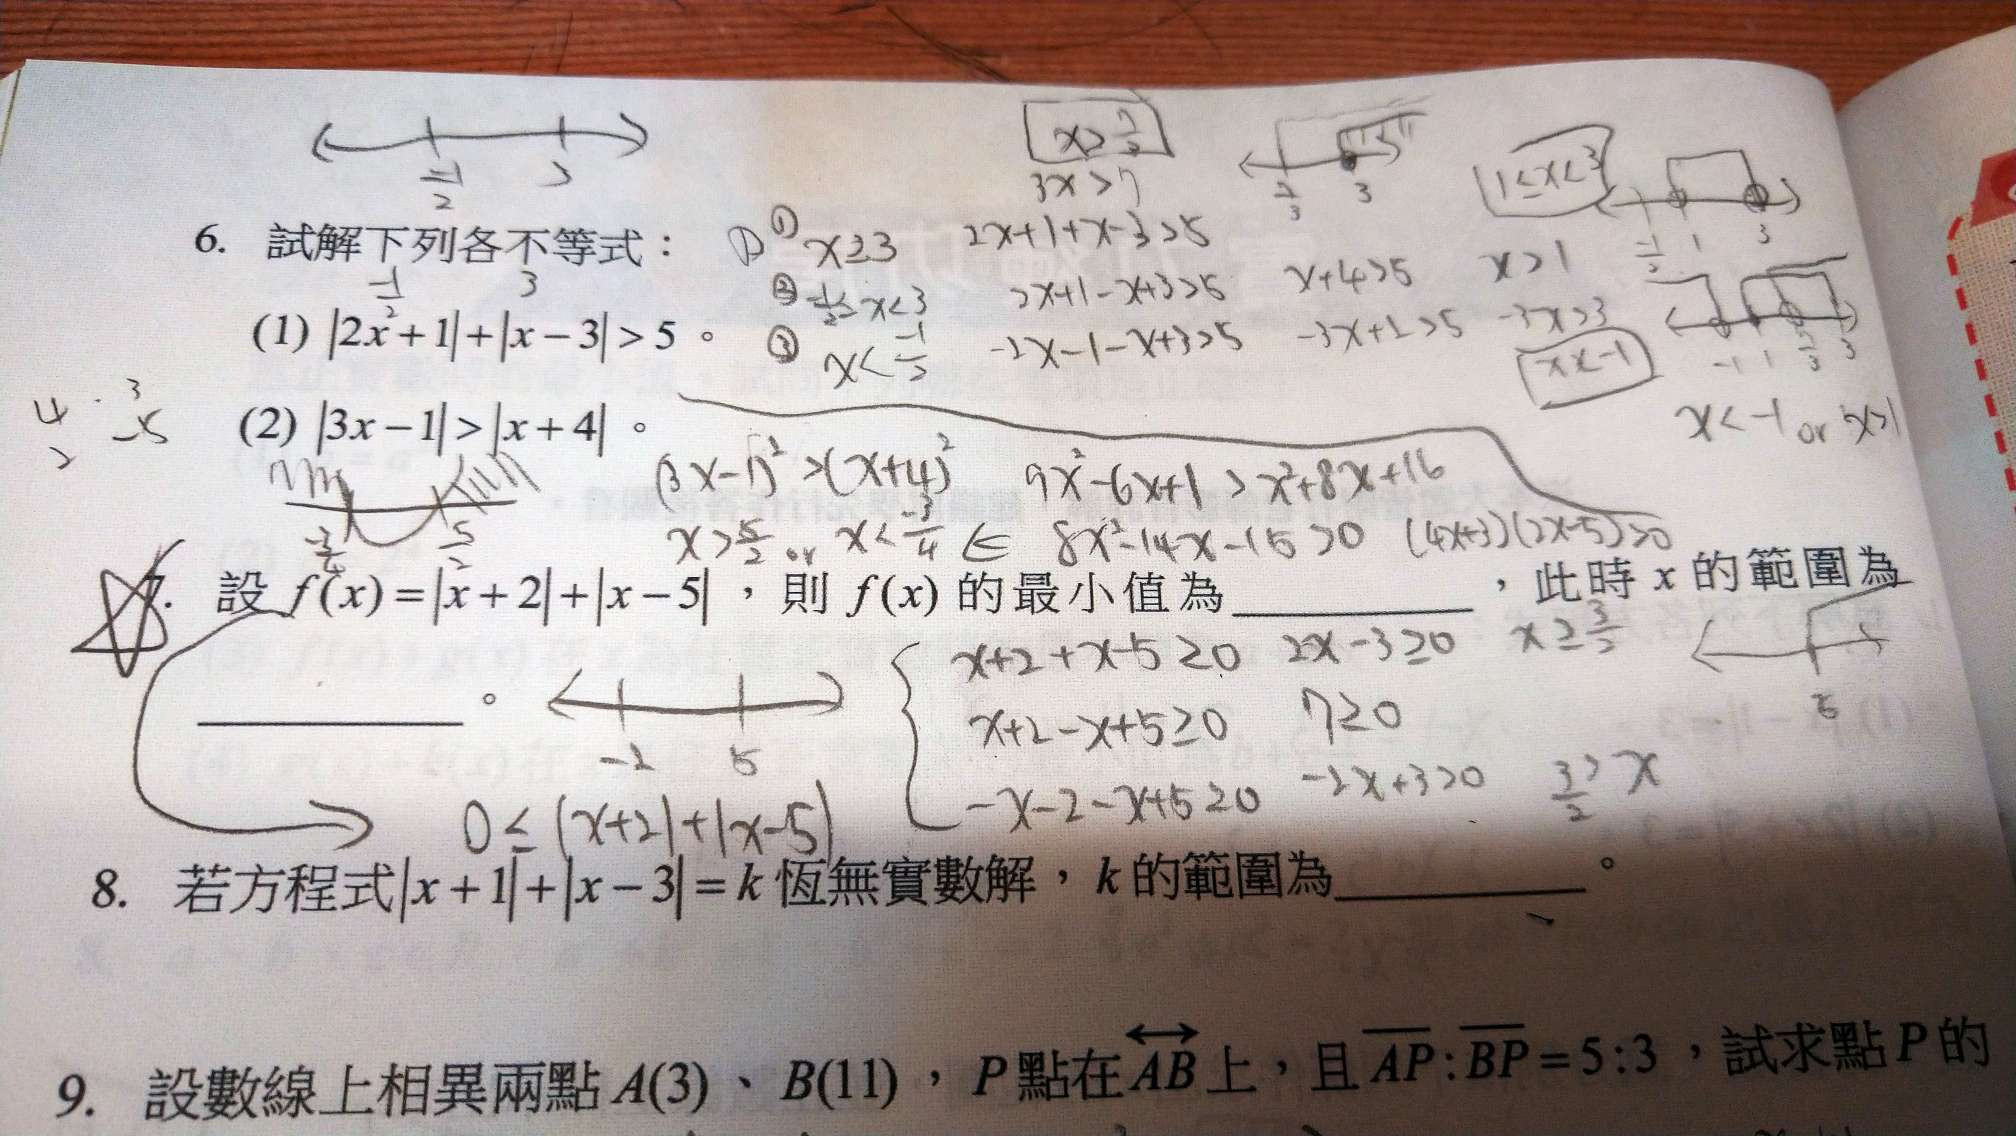 -1/2 3
x>7/3
3x>7
7/3 3
1≤x<3
-1/2 1 3
6. 試解下列各不等式：
① x≥3 2x+1+x-3>5
-1/2 3
② -1/2≤x<3 2x+1-x+3>5 x+4>5 x>1
(1) |2x+1|+|x-3|>5。
③ x<-1/2 -2x-1-x+3>5 -3x+2>5 -3x>3
x<-1
-1 1 7/3 3
x<-1 or x>1
4 3
2 -5
(2) |3x-1|>|x+4|。
(3x-1)²>(x+4)² 9x²-6x+1>x²+8x+16
x>5/2 or x<-3/4 ⇐ 8x²-14x-15>0 (4x+3)(2x-5)>0
-3/4 5/2
7. 設 f(x)=|x+2|+|x-5|，則 f(x) 的最小值為________，此時 x 的範圍為
________。
x+2+x-5≥0 2x-3≥0 x≥3/2
-2 5
x+2-x+5≥0 7≥0
-x-2-x+5≥0 -2x+3>0 3/2>x
0≤|x+2|+|x-5|
8. 若方程式|x+1|+|x-3|=k 恆無實數解，k 的範圍為________。
9. 設數線上相異兩點 A(3)、B(11)，P 點在 AB 上，且 AP:BP=5:3，試求點 P 的